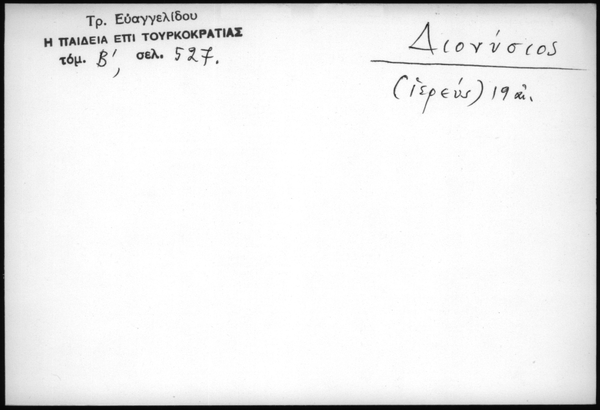 Τρ. Εὐαγγελίδου
Η ΠΑΙΔΕΙΑ ΕΠΙ ΤΟΥΡΚΟΚΡΑΤΙΑΣ
τόμ. Β', σελ. 527.
Διονύσιος
(ἱερεύς) 19 αἰ.